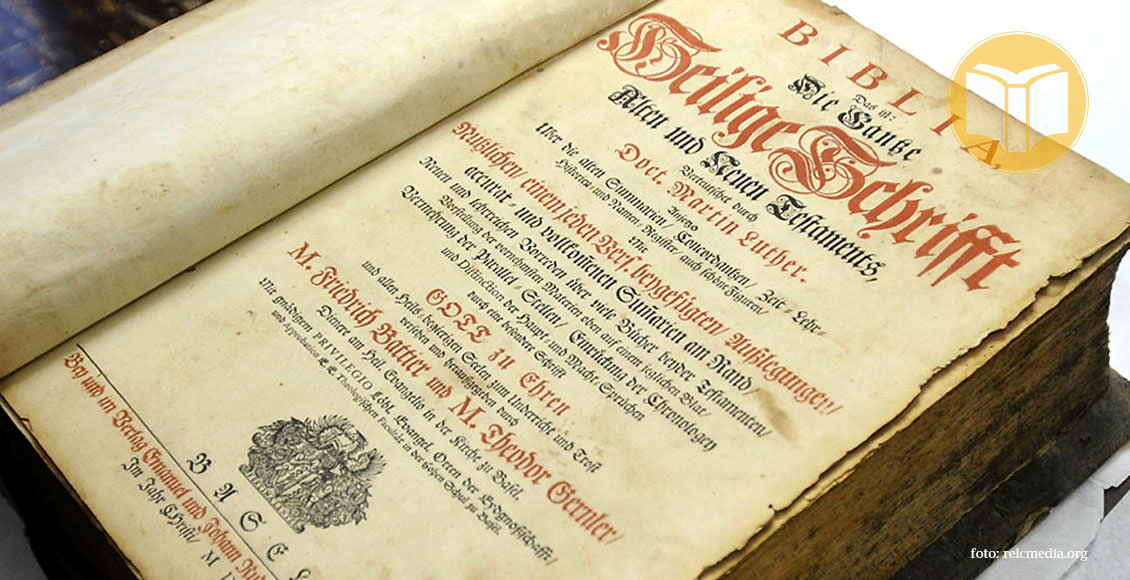 BIBLIA
Das ist:
Die Gantze
Heilige Schrifft
Alten und Neuen Testaments,
Verteutschet durch
Doct. Martin Luther.
Uber die alten Summarien/ Concordantzen/ Zeit- Lehr-
Historien und Namen-Register/ auch schöne Figuren/
Nutzlichen/ einem jeden Vers beygefügten/ Außlegungen/
accurat- und vollkom̃enen Sum̃arien am Rand/
Neuen und lehrreichen Vorreden über viele Bücher beyder Testamenten/
Vorstellung der vornehmsten Materien oben auf einem jeglichen Blat/
Vermehrung der Parallel-Stellen/ Einrückung der Chronologey
und Distinction der Haupt- und Macht-Sprüchen
durch eine besondere Schrifft
GOTT zu Ehren
und allen Heils-begierigen Seelen zum Unterricht und Trost
versehen und herausgegeben durch
M. Friedrich Battier und M. Theodor Gernler/
Diener am Heil. Evangelio in der Kirche zu Basel.
Mit gnädigem PRIVILEGIO Lobl. Evangel. Orten der Eydgnoßschafft/
und Approbation E. E. Theologischen Facultät in der Hohen Schul zu Basel.
BASEL
Bey und in Verlag Emanuel und Johann
Im Jahr Christi/ M D
foto: relcmedia.org